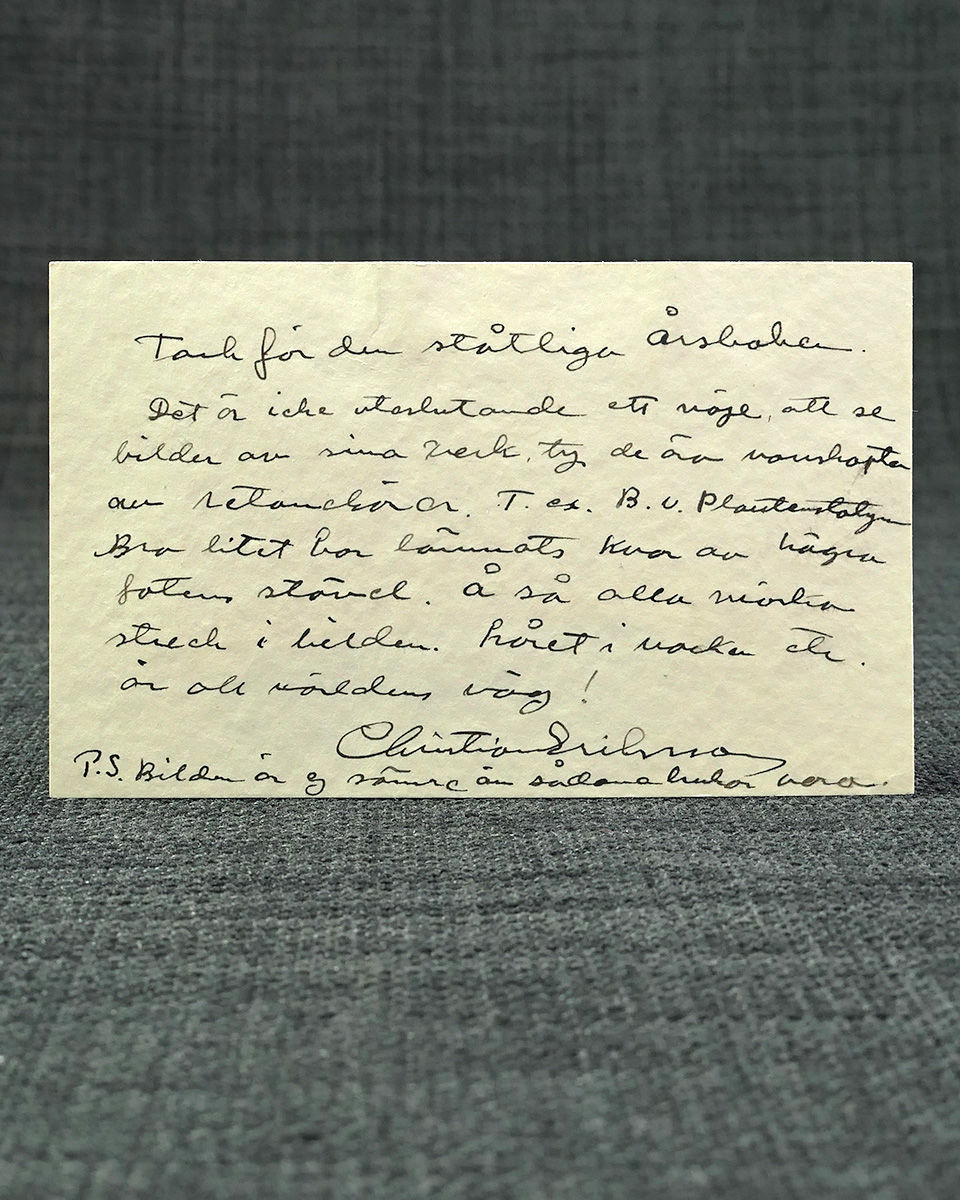 Tack för den ståtliga årsboken.
Det är icke uteslutande ett nöje, att se
bilder av sina verk, ty de äro vanskapta
av retouchörer. T. ex. B. v. Platenstatyn
Bra litet har lämnats kvar av högra
fotens stövel. Å så alla mörka
streck i bilden. håret i nacken etc.
är all världens väg!
Christian Eriksson
P.S. Bilden är ej sämre än sådana bruka vara.